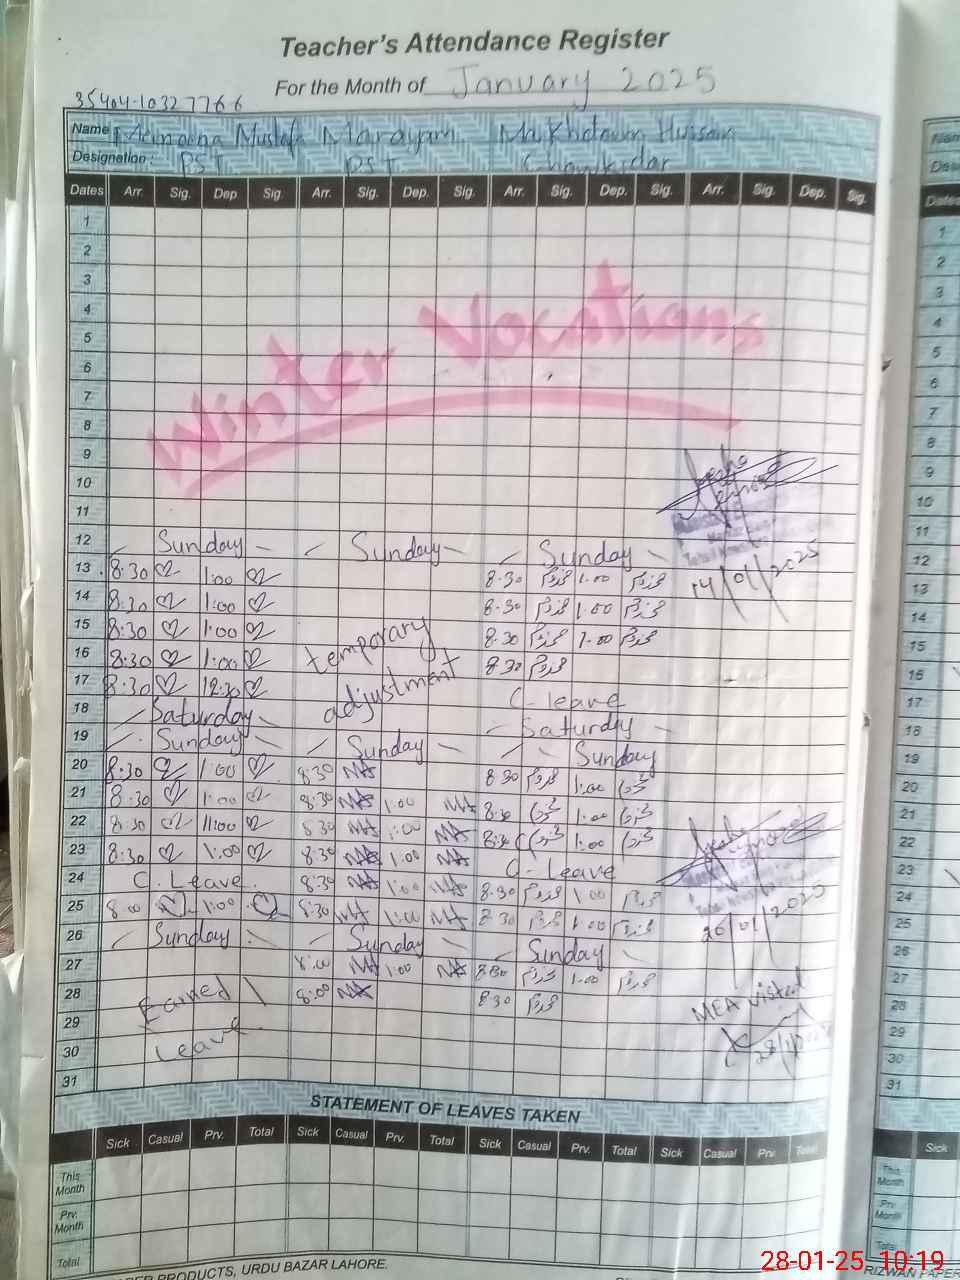 Teacher's Attendance Register
For the Month of January 2025
35404-1032776 6
Name Maimoona Mustafa Marayam Makhdoum Hussain
Designation: PST PST Chowkidar
Dates Arr. Sig. Dep. Sig. Arr. Sig. Dep. Sig. Arr. Sig. Dep. Sig. Arr. Sig. Dep. Sig.
1
2
3
4
5
6
7
8
9
10
11
Winter Vocations
12 Sunday Sunday Sunday
13 8:30 1:00 8:30 مخدوم 1:00 مخدوم
14/01/2025
14 8:30 1:00 8:30 مخدوم 1:00 مخدوم
15 8:30 1:00 8:30 مخدوم 1:00 مخدوم
16 8:30 1:00 8:30 مخدوم
temporary adjustment
17 8:30 12:30 C-leave
18 Saturday Saturday
19 Sunday Sunday Sunday
20 8:30 1:00 8:30 8:30 مخدوم 1:00
21 8:30 1:00 8:30 1:00 8:30 1:00
22 8:30 8:30 1:00 8:30 1:00
23 8:30 1:00 8:30 1:00 C-leave
24 C. Leave 8:30 1:00 8:30 مخدوم 1:00 مخدوم
25 8:00 1:00 8:30 1:00 8:30 مخدوم 1:00 مخدوم
26/01/2025
26 Sunday Sunday Sunday
27 8:00 1:00 8:30 مخدوم 1:00 مخدوم
28 8:00 8:30 مخدوم
Earned Leave
MEA visted
29
30
31
STATEMENT OF LEAVES TAKEN
Sick Casual Prv. Total Sick Casual Prv. Total Sick Casual Prv. Total Sick Casual Prv. Total
This Month
Prv. Month
Total
PRODUCTS, URDU BAZAR LAHORE.
Dates
1
2
3
4
5
6
7
8
9
10
11
12
13
14
15
16
17
18
19
20
21
22
23
24
25
26
27
28
29
30
31
Sick
This Month
Prv. Month
Total
RIZWAN PAPER
28-01-25 10:19